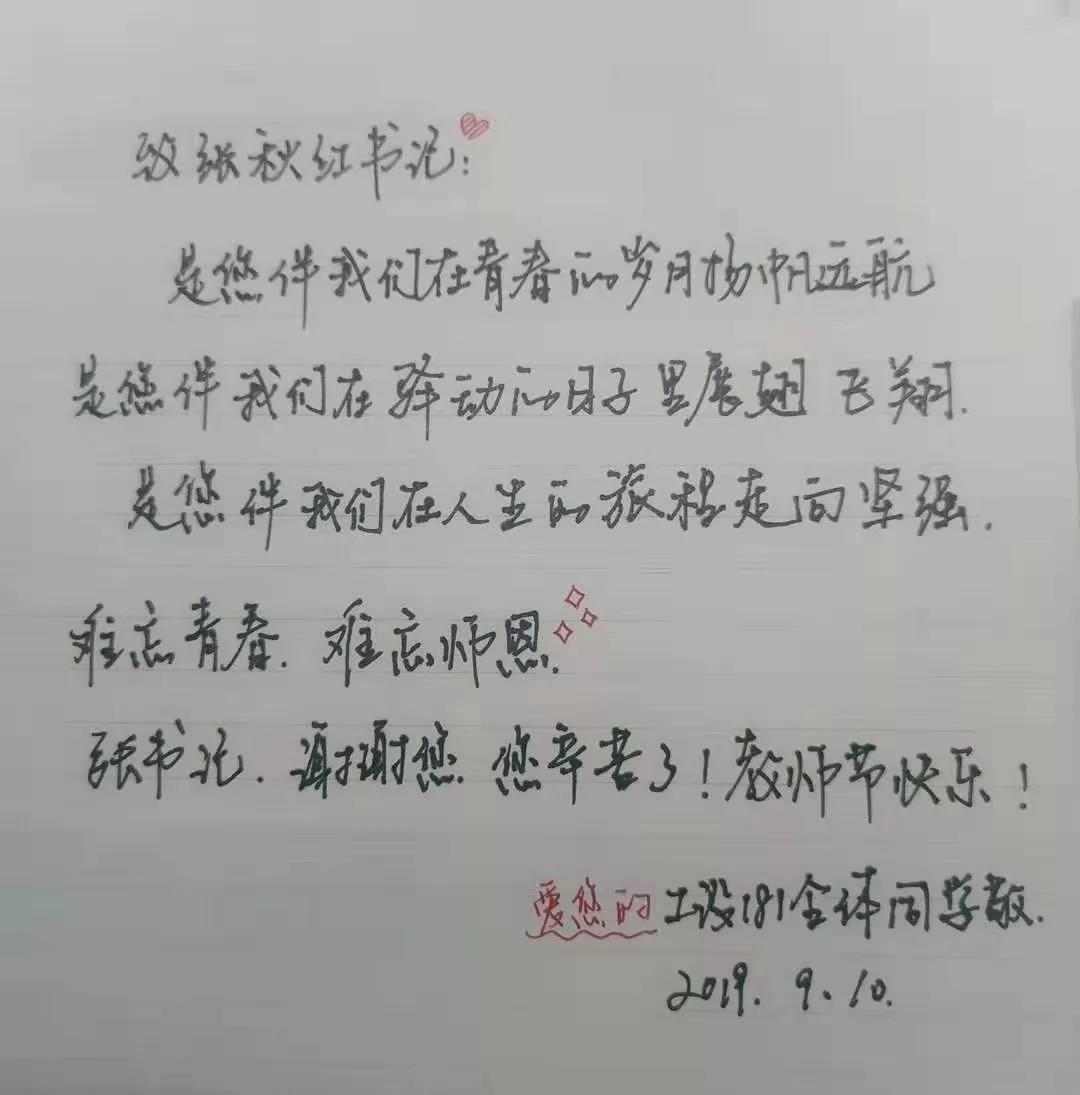 致张秋红书记:
是您伴我们在青春的岁月扬帆远航
是您伴我们在驿动的日子里展翅飞翔.
是您伴我们在人生的旅程走向坚强.
难忘青春. 难忘师恩.
张书记. 谢谢您. 您辛苦了! 教师节快乐!
爱您的 工设181全体同学敬.
2019. 9. 10.